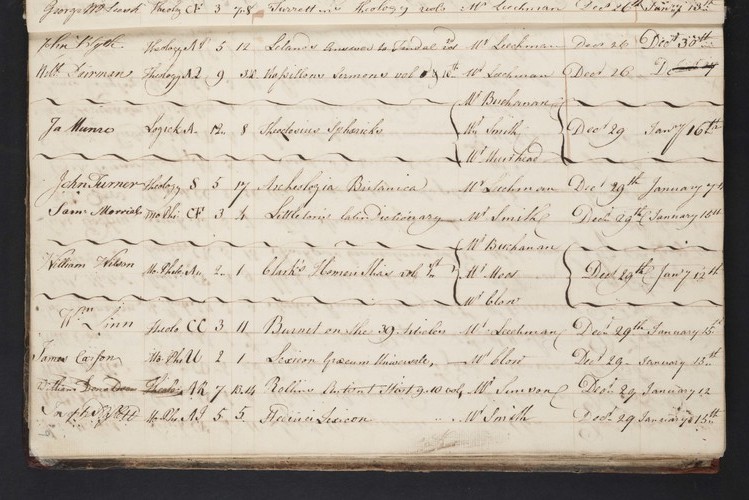 George McLeish Theolog CF 3 7.8 Turrettins Theology vols Mr Leechman Decr 26th Janry 13th
John Theology 5 12 Lelands Answer to Tindal vol Mr Leechman Decr 26 Decr 30th
Robt Fairman Theology 9 Massillons Sermons vol Mr Leechman Decr 26
Mr Buchanan
Ja Munro Logick 12 8 Theodosius Sphericks Mr Smith Decr 29 Janry 16th
Mr Muirhead
John Turner Theology S 5 17 Archeologia Britanica Mr Leechman Decr 29th January
Saml Mo Phi CF 3 4 Littletons latin dictionary Mr Smith Decr 29th January 15th
Mr Buchanan
William Wilson Mo. Philo 2 1 Clark's Homeri Ilias vol 1st Mr Moor Decr 29th Janry 12th
Mr Clow
Wm Linn Theolo CC 3 11 Burnet on the 39 Articles Mr Leechman Decr 29th January 15th
James Carson Mo Pho U 2 1 Lexicon Græcum Universale, Mr Clow Decr 29 January 15th
William Donaldson Theolo AK 7 13.14 Rollins Antient Hist 9-10 vol Mr Simson Decr 29 January 12
Joseph Mo Pho 5 5 Hederici Lexicon Mr Smith Decr 29 January 15th